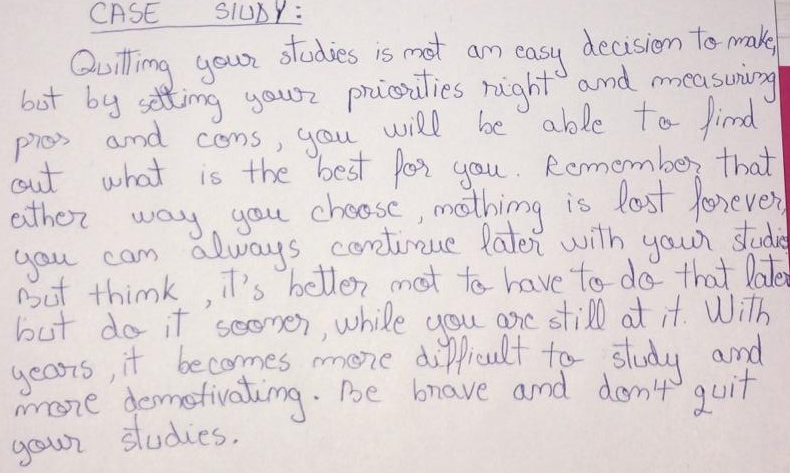 CASE STUDY:
Quitting your studies is not an easy decision to make,
but by setting your priorities right and measuring
pros and cons, you will be able to find
out what is the best for you. Remember that
either way you choose, nothing is lost forever,
you can always continue later with your studies
But think, it's better not to have to do that later
but do it sooner, while you are still at it. With
years, it becomes more difficult to study and
more demotivating. Be brave and don't quit
your studies.